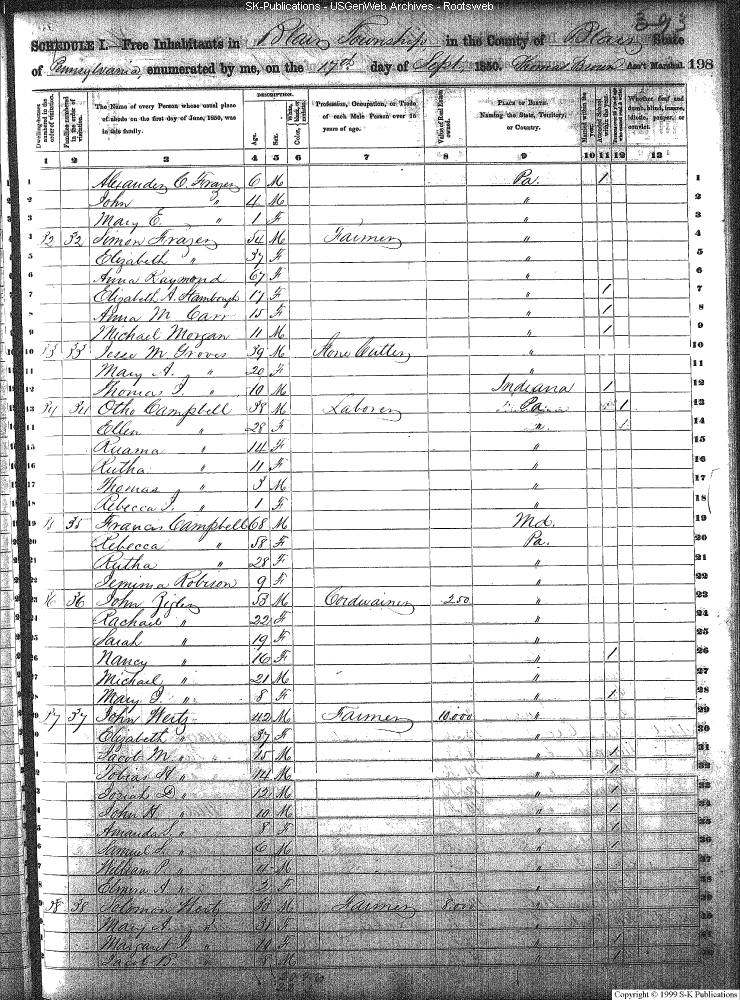 SK-Publications - USGenWeb Archives - Rootsweb
393
SCHEDULE I. Free Inhabitants in Blair Township in the County of Blair State
of Pennsylvania enumerated by me, on the 17th day of Sept 1850. Thomas Ass't Marshal. 198
Dwelling-houses numbered in the order of visitation. Families numbered in the order of visitation. The Name of every Person whose usual place of abode on the first day of June, 1850, was in this family. DESCRIPTION. Age. Sex. White, black, or mulatto. Color, Profession, Occupation, or Trade of each Male Person over 15 years of age. Value of Real Estate owned. PLACE OF BIRTH. Naming the State, Territory, or Country. Married within the year. Attended School within the year. Whether deaf and dumb, blind, insane, idiotic, pauper, or convict.
1 2 3 4 5 6 7 8 9 10 11 12 13
1 Alexander C. Frazer 6 M Pa. 1 1
2 John " 4 M " 2
3 Mary E. " 1 F " 3
4 32 32 Simon Frazer 54 M Farmer " 4
5 Elizabeth " 37 F " 5
6 Anna Raymond 67 F " 6
7 Elizabeth A. Stambough 17 F " 1 7
8 Anna M. Carr 15 F " 1 8
9 Michael Morgan 11 M " 1 9
10 33 33 Jesse M. Groves 39 M Stone Cutter " 10
11 Mary A. " 20 F " 11
12 Thomas J. " 10 M Indiana 1 12
13 34 34 Otho Campbell 38 M Laborer Pa. 1 13
14 Ellen " 28 F " 1 14
15 Ruama " 14 F " 15
16 Rutha " 11 F " 16
17 Thomas " 3 M " 17
18 Rebecca J. " 1 F " 18
19 35 35 Francis Campbell 68 M Md. 19
20 Rebecca " 58 F Pa. 20
21 Rutha " 28 F " 21
22 Jemima Robison 9 F " 22
23 36 36 John Zigler 53 M Cordwainer 250 " 23
24 Rachael " 22 F " 24
25 Sarah " 19 F " 25
26 Nancy " 16 F " 1 26
27 Michael " 21 M " 27
28 Mary J. " 8 F " 1 28
29 37 37 John Wertz 42 M Farmer 10.000 " 29
30 Elizabeth " 37 F " 30
31 Jacob M. " 15 M " 1 31
32 Tobias H. " 14 M " 1 32
33 Josiah D. " 12 M " 1 33
34 John H. " 10 M " 1 34
35 Amanda S. " 8 F " 1 35
36 Samuel L. " 6 M " 1 36
37 William P. " 4 M " 37
38 Elmira A. " 2 F " 38
39 38 38 Solomon Wertz 33 M Farmer 8.000 " 39
40 Mary A. " 31 F "
Margaret J. " 10 F " 1
Jacob B. " 8 M " 1
Copyright © 1999 S-K Publications